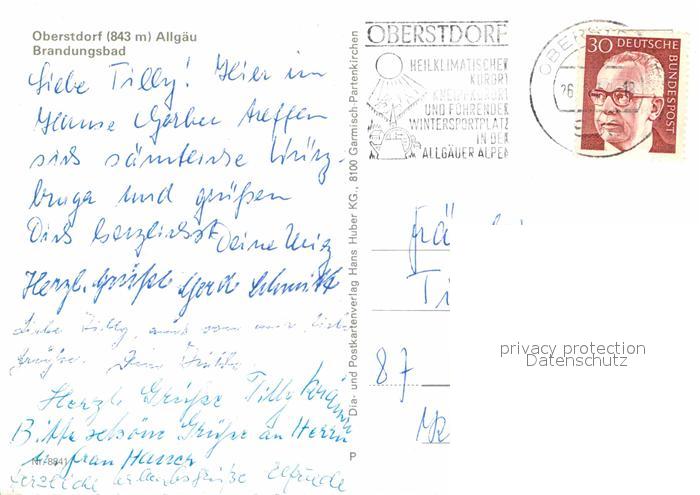 Oberstdorf (843 m) Allgäu
Brandungsbad
Liebe Tilly! Hier im
Hause Gerber treffen
sich sämtliche Würz-
burger und grüßen
Dich herzlichst Deine
Herzl. Grüße Gerda Schmitt
Liebe Tilly, auch von mir liebe
Grüße. Deine
Herzl. Grüße Tilly
Bitte schöne Grüße an Herrn
u. Frau
Nr. 8841
herzliche Urlaubsgrüße
Dia- und Postkartenverlag Hans Huber KG., 8100 Garmisch-Partenkirchen
P
OBERSTDORF
HEILKLIMATISCHER
KURORT
KNEIPPKURORT
UND FÜHRENDER
WINTERSPORTPLATZ
IN DEN
ALLGÄUER ALPEN
26
30 DEUTSCHE
BUNDESPOST
Frä
Ti
87
privacy protection
Datenschutz